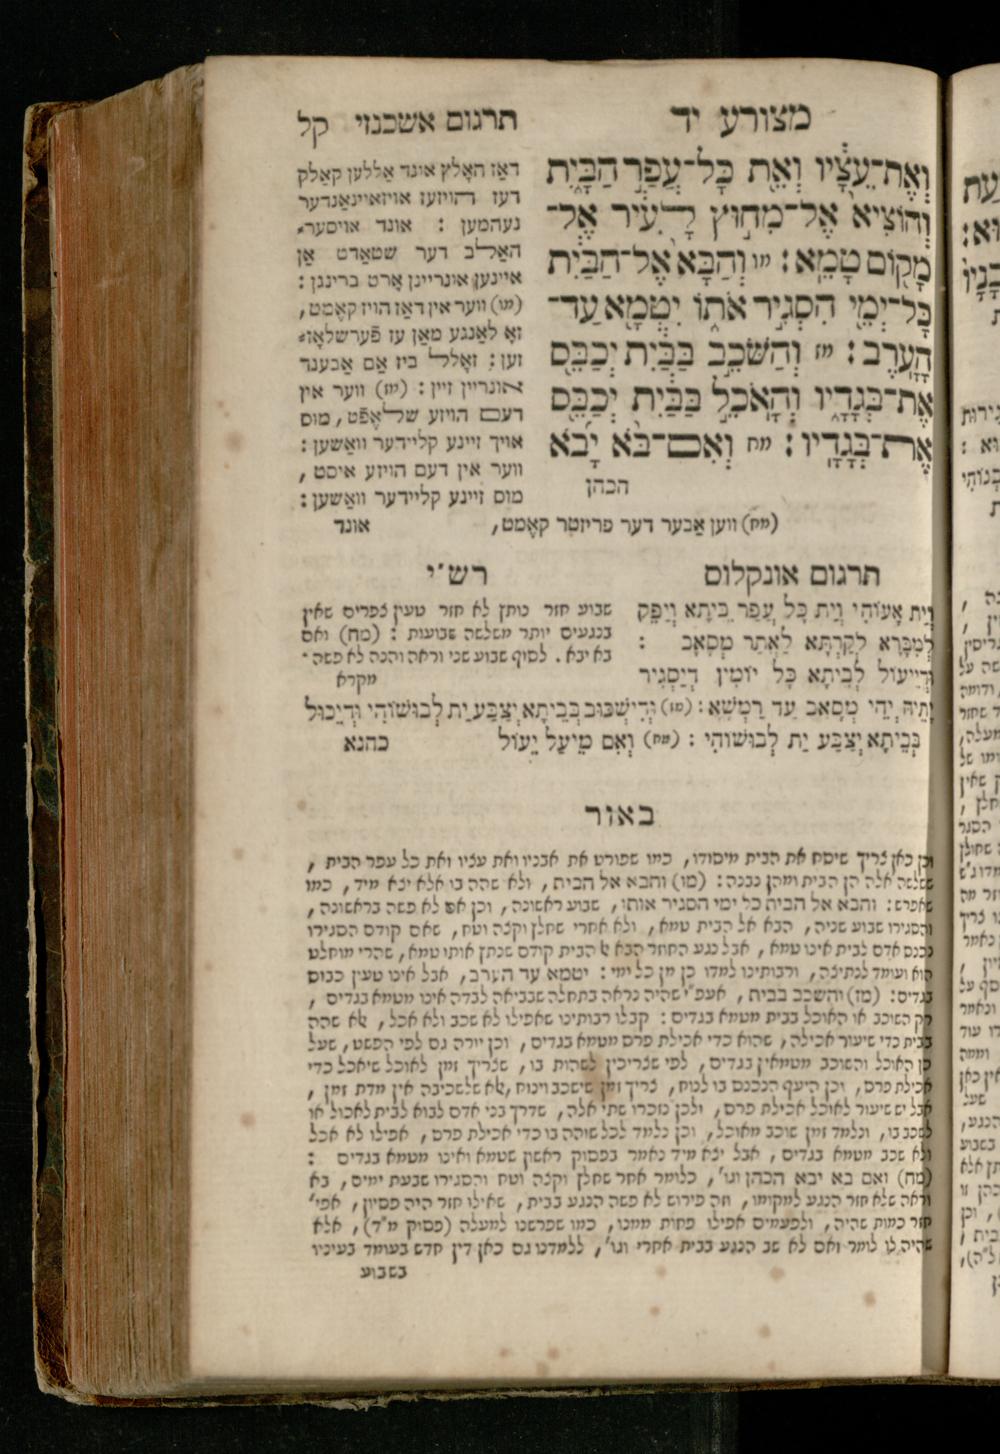 מצורע יד
תרגום אשכנזי קל
וְאֶת־עֵצָיו וְאֵת כָּל־עֲפַר הַבָּיִת
וְהוֹצִיא אֶל־מִחוּץ לָעִיר אֶל־
מָקוֹם טָמֵא : מו וְהַבָּא אֶל־הַבַּיִת
כָּל־יְמֵי הִסְגִּיר אֹתוֹ יִטְמָא עַד־
הָעָרֶב : מז וְהַשֹּׁכֵב בַּבַּיִת יְכַבֵּס
אֶת־בְּגָדָיו וְהָאֹכֵל בַּבַּיִת יְכַבֵּס
אֶת־בְּגָדָיו : מח וְאִם־בֹּא יָבֹא
הכהן
דאַז האָלץ אונד אַללען קאַלק
דעז הויזעז אויזאיינאַנדער
נעהמען : אונד אויסער־
האַלב דער שטאַדט אָן
איינען אונריינן אָרט ברינגן :
(מו) ווער אין דאַז הויז קאָמט,
זאָ לאַנגע מאַן עז פֿערשלאָז־
זען ; זאָלל ביז אַם אַבענד
אונריין זיין : (מז) ווער אין
דעם הויזע שלאָפֿט, מוס
אויך זיינע קליידער וואַשען :
ווער אין דעם הויזע איסט ,
מוס זיינע קליידער וואַשען :
(מח) ווען אַבער דער פריזטר קאָמט, אונד
תרגום אונקלוס
וְיַת אָעוֹהִי וְיַת כָּל עֲפַר בֵּיתָא וְיַפֵּק
לְמִבָּרָא לְקַרְתָּא לַאֲתַר מְסָאָב :
וּדְיֵיעוֹל לְבֵיתָא כָּל יוֹמִין דְּיַסְגִּיר
יָתֵיהּ יְהֵי מְסָאב עַד רַמְשָׁא : (מז) וּדְיִשְׁכּוּב בְּבֵיתָא יְצַבַּע יַת לְבוּשׁוֹהִי וּדְיֵכוּל
בְּבֵיתָא יְצַבַּע יַת לְבוּשׁוֹהִי : (מח) וְאִם מֵיעַל יֵעוֹל כהנא
רש"י
שבוע חזר כותן לא חזר טעין צפרים שאין
בנגעים יותר משלשה שבועות : (מח) ואם
בא יבא . לסוף שבוע שני וראה והנה לא פשה ·
מקרא
באור
וכן כאן צריך שיסח את הבית מיסודו, כמו שפורט את אבניו ואת עציו ואת כל עפר הבית ,
ששלשה אלה הן הבית ומהן נבנה : (מו) והבא אל הבית , ולא שהה בו אלא יצא מיד , כמו
שאפרש : והבא אל הבית כל ימי הסגיר אותו , שבוע ראשונה , וכן אם לא פשה בראשונה ,
והסגירו שבוע שניה , הבא אל הבית טמא , ולא אחרי שחלץ וקצה וטח , שאם קודם הסגירו
נכנס אדם לבית אינו טמא , אבל נגע החוזר הבא אל הבית קודם שנתץ אותו טמא , שהרי מוחלט
הוא ועומד לנתיצה , ורבותינו למדו כן מן כל ימי : יטמא עד הערב , אבל אינו טעין כבוס
בגדים : (מז) והשכב בבית , אעפ"י שהיה נראה בתחלה שבביאה לבדה אינו מטמא בגדים ,
רק השוכב או האוכל בבית מטמא בגדים : קבלו רבותינו שאפילו לא שכב ולא אכל , אלא שהה
בבית כדי שיעור אכילה , שהוא כדי אכילת פרס מטמא בגדים , וכן יורה גם לפי הפשט , שעל
כן האוכל והשוכב מטמאין בגדים , לפי שצריכין לשהות בו , שצריך זמן לאוכל שיאכל כדי
אכילת פרס , וכן היעף הנכנס בו לנוח , צריך זמן שישכב וינוח , אלא שלשכיבה אין מדת זמן ,
אבל יש שיעור לאוכל אכילת פרס , ולכן נזכרו שתי אלה , שדרך בני אדם לבוא לבית לאכול או
לשכב בו , ונלמד זמן שוכב מאוכל , וכן נלמד לכל שוהה בו כדי אכילת פרס , אפילו לא אכל
ולא שכב מטמא בגדים , אבל יצא מיד נאמר בפסוק ראשון שטמא ואינו מטמא בגדים :
(מח) ואם בא יבא הכהן וגו' , כלומר אחר שחלץ וקצה וטח והסגירו שבעת ימים , בא
וראה שלא חזר הנגע למקומו , וזה פירוש לא פשה הנגע בבית , שאילו חזר היה פסיון , אפי'
חזר כמות שהיה , ולפעמים אפילו פחות ממנו , כמו שפרשנו למעלה (פסוק מ"ד) , אלא
שהיה לו לומר ואם לא שב הנגע בבית אחרי וגו' , ללמדנו גם כאן דין חדש בעומד בעיניו
בשבוע